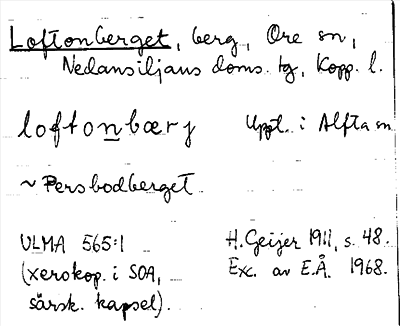 Loftonberget, berg, Ore sn,
Nedansiljans doms. tg, Kopp. l.
loftonbærj
Uppt. i Alfta sn
~ Persbodberget
ULMA 565:1
(xerokop. i SOA,
särsk. kapsel).
H. Geijer 1911, s. 48.
Exc. av E.Å. 1968.